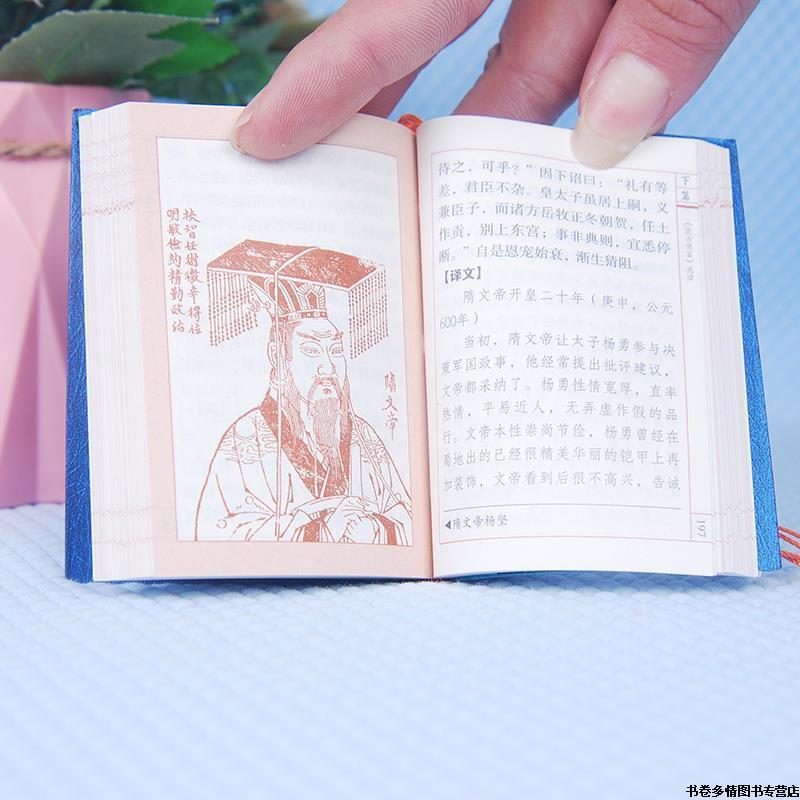 智任 幸得位
明敏儉約精勤政治
隋文帝
待之，可乎？”因下诏曰：“礼有等
差，君臣不杂。皇太子虽居上嗣，义
兼臣子，而诸方岳牧正冬朝贺，任土
作贡，别上东宫；事非典则，宜悉停
断。”自是恩宠始衰，渐生猜阻。
【译文】
隋文帝开皇二十年（庚申，公元
600年）
当初，隋文帝让太子杨勇参与决
策军国政事，他经常提出批评建议，
文帝都采纳了。杨勇性情宽厚，直率
热情，平易近人，无弄虚作假的品
行。文帝本性崇尚节俭，杨勇曾经在
蜀地出的已经很精美华丽的铠甲上再
加装饰，文帝看到后很不高兴，告诫
◀隋文帝杨坚
下篇
《资治通鉴》选读
197
书卷多情图书专营店